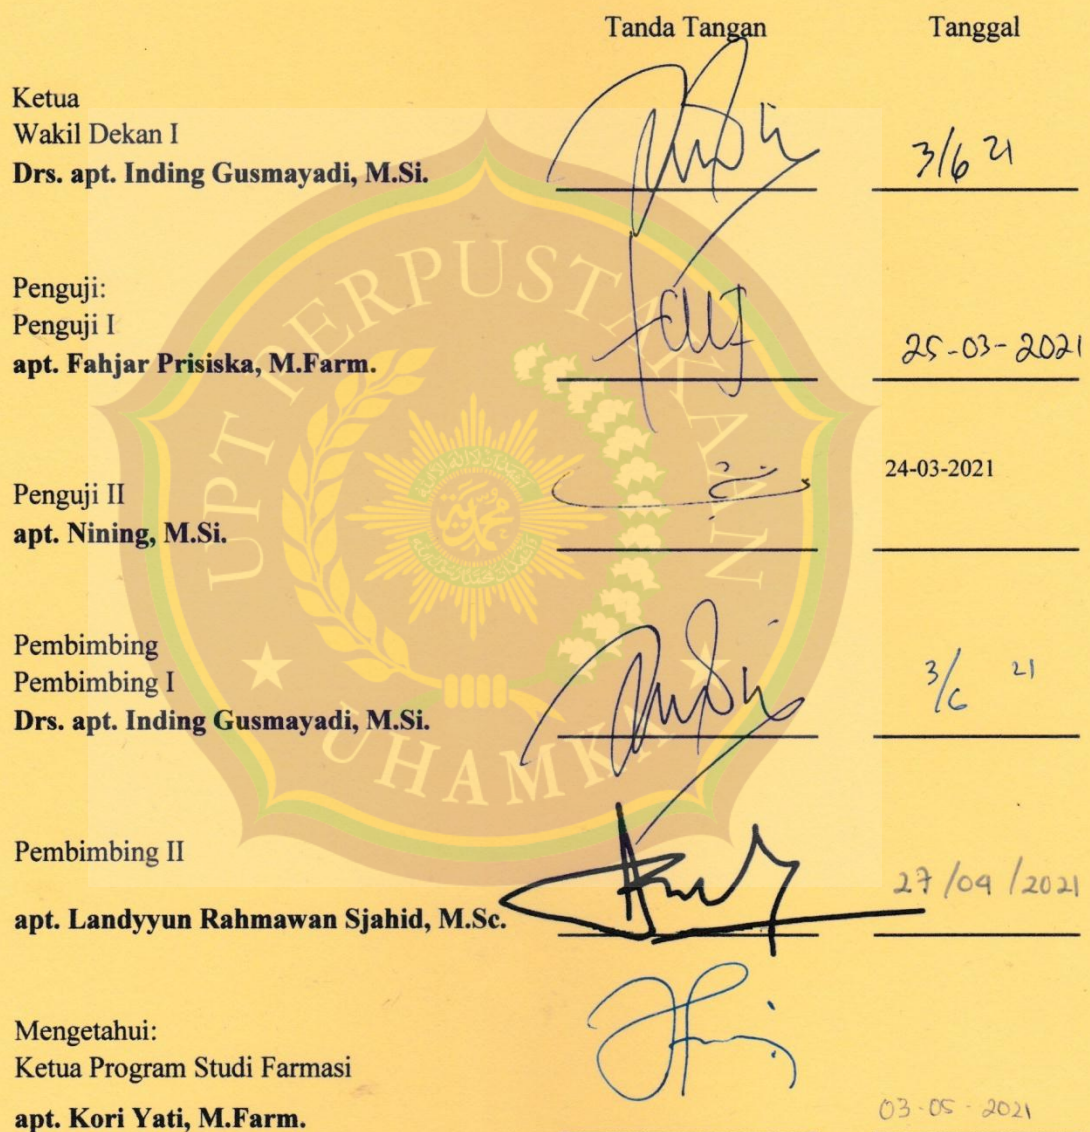 Tanda Tangan Tanggal
Ketua
Wakil Dekan I
Drs. apt. Inding Gusmayadi, M.Si. 3/6 21
Penguji:
Penguji I
apt. Fahjar Prisiska, M.Farm. 25-03-2021
24-03-2021
Penguji II
apt. Nining, M.Si.
Pembimbing
Pembimbing I
Drs. apt. Inding Gusmayadi, M.Si. 3/6 21
Pembimbing II
27/04/2021
apt. Landyyun Rahmawan Sjahid, M.Sc.
Mengetahui:
Ketua Program Studi Farmasi
apt. Kori Yati, M.Farm. 03-05-2021
UPT PERPUSTAKAAN
UHAMKA